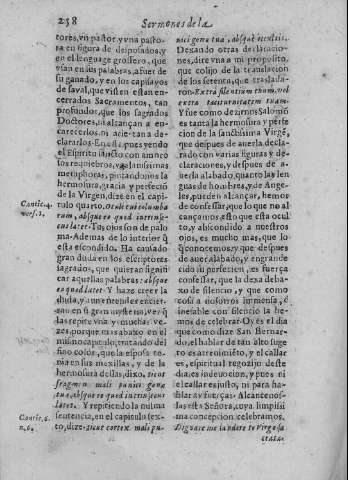 258
Sermones de la
tores, vn pastor, y vna pasto-
ra en figura de desposados, y
en el lenguage grossero, que
vsan en sus palabras, a fuer de
su ganado, y en los capisayos
de sayal, que visten estan en-
cerrados Sacramentos, tan
profundos, que los sagrados
Doctores, ni alcançan a en-
carecerlos, ni aciertan a de-
clararlos. En este, pues yendo
el Espiritu santo con amoro
sos requiebros, y altissimas
metaphoras, pintandonos la
hermosura, gracia y perfeció
de la Virgen, dize en el capi-
tulo quarto, Oculi tui columba
rum, absque eo quod intrinse-
cus latet. Tus ojos son de palo
ma. Ademas de lo interior q̃
esta escondido. Ha causado
gran duda en los escriptores
sagrados, que quieran signifi
car aquellas palabras: absque
eo quod latet. Y haze creer la
duda, y aun entender encier-
ran en si gran mysterio, ver q̃
las repite vna y muchas ve-
zes, porque mas abaxo en el
mismo capitulo, tratando del
fino color, que la esposa te-
nia en sus mexillas, y de la
hermosura dellas, dixo, sicut
fragmen mali punici genæ
tuæ, absque eo quod intrinsecus
latet. Y repitiendo la misma
sentencia, en el capitulo sex-
to, dize: sicut cortex mali pu-
Cantic. 4.
vers. 1.
Cantic. 6.
n. 6.
nici genæ tuæ, absque occultis.
Dexando otras declaracio-
nes, dire vna a mi proposito,
que colijo de la translacion
de los setenta, que traslada-
ron. Extra silentium tuum, vel
extra taciturnitatem tuam.
Y fue como dezirnos Salomó
es tanta la hermosura y perfe
cion de la sanctissima Virgẽ,
que despues de auerla, declara
do con varias figuras y de-
claraciones, y despues de a-
uerla alabado, quanto las len
guas de hombres, y de Ange-
les, pueden Alançar, que no al
cançamos, esto que esta ocul
to, y abscondido a nuestros
ojos, es mucho mas, que lo
q̃ conocemos, y que despues
de auer alabado, y engrande
cido su perfection, es fuerça
confessar, que la dexa deba-
xo de silencio, y que como
cosa a nosotros immensa, è
inefable con silencio la he-
mos de celebrar. Oy es el dia
que como dize San Bernar-
do, el hablar de tan alto suge
to es atreuimiẽto, y el callar
es, espiritual regozijo deste
dia, es indeuocion, y pues ni
el callar es justo, ni para ha-
blar ay fuerças. Alcançenos-
las esta Señora, cuya limpissi
ma concepcion celebramos.
Dignare me laudare te Virgo sa
crata.